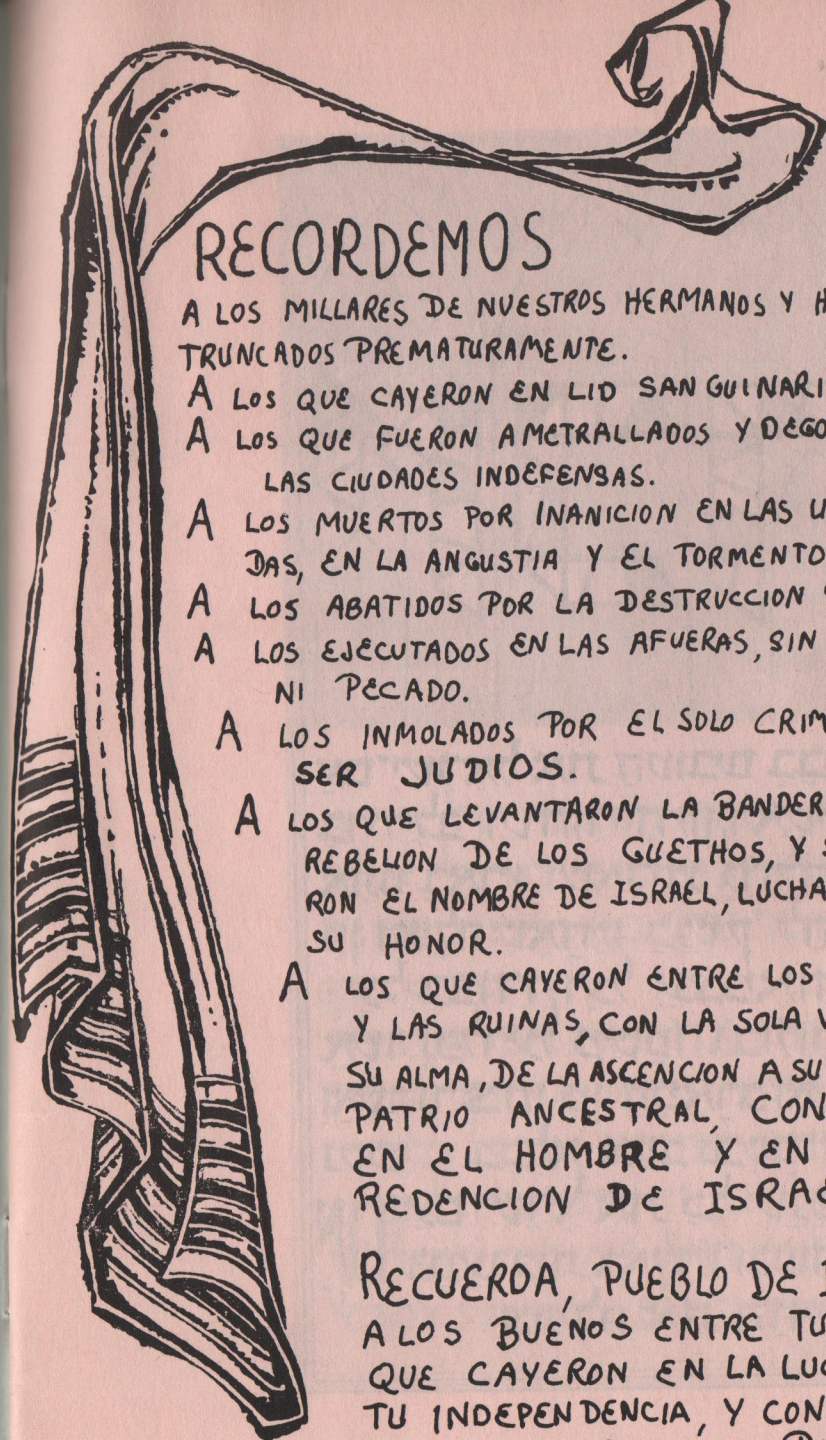 RECORDEMOS
A LOS MILLARES DE NUESTROS HERMANOS Y
TRUNCADOS PREMATURAMENTE.
A LOS QUE CAYERON EN LID
A LOS QUE FUERON AMETRALLADOS Y
LAS CIUDADES INDEFENSAS.
A LOS MUERTOS POR INANICION EN LAS
DAS, EN LA ANGUSTIA Y EL TORMENTO
A LOS ABATIDOS POR LA DESTRUCCION
A LOS EJECUTADOS EN LAS AFUERAS, SIN
NI PECADO.
A LOS INMOLADOS POR EL SOLO
SER JUDIOS.
A LOS QUE LEVANTARON LA
REBELION DE LOS GUETHOS, Y
RON EL NOMBRE DE ISRAEL,
SU HONOR.
A LOS QUE CAYERON ENTRE LOS
Y LAS RUINAS, CON LA SOLA
SU ALMA, DE LA ASCENCION A SU
PATRIO ANCESTRAL, CON
EN EL HOMBRE Y EN
REDENCION DE
RECUERDA, PUEBLO DE
A LOS BUENOS ENTRE
QUE CAYERON EN LA
TU INDEPENDENCIA, Y CON